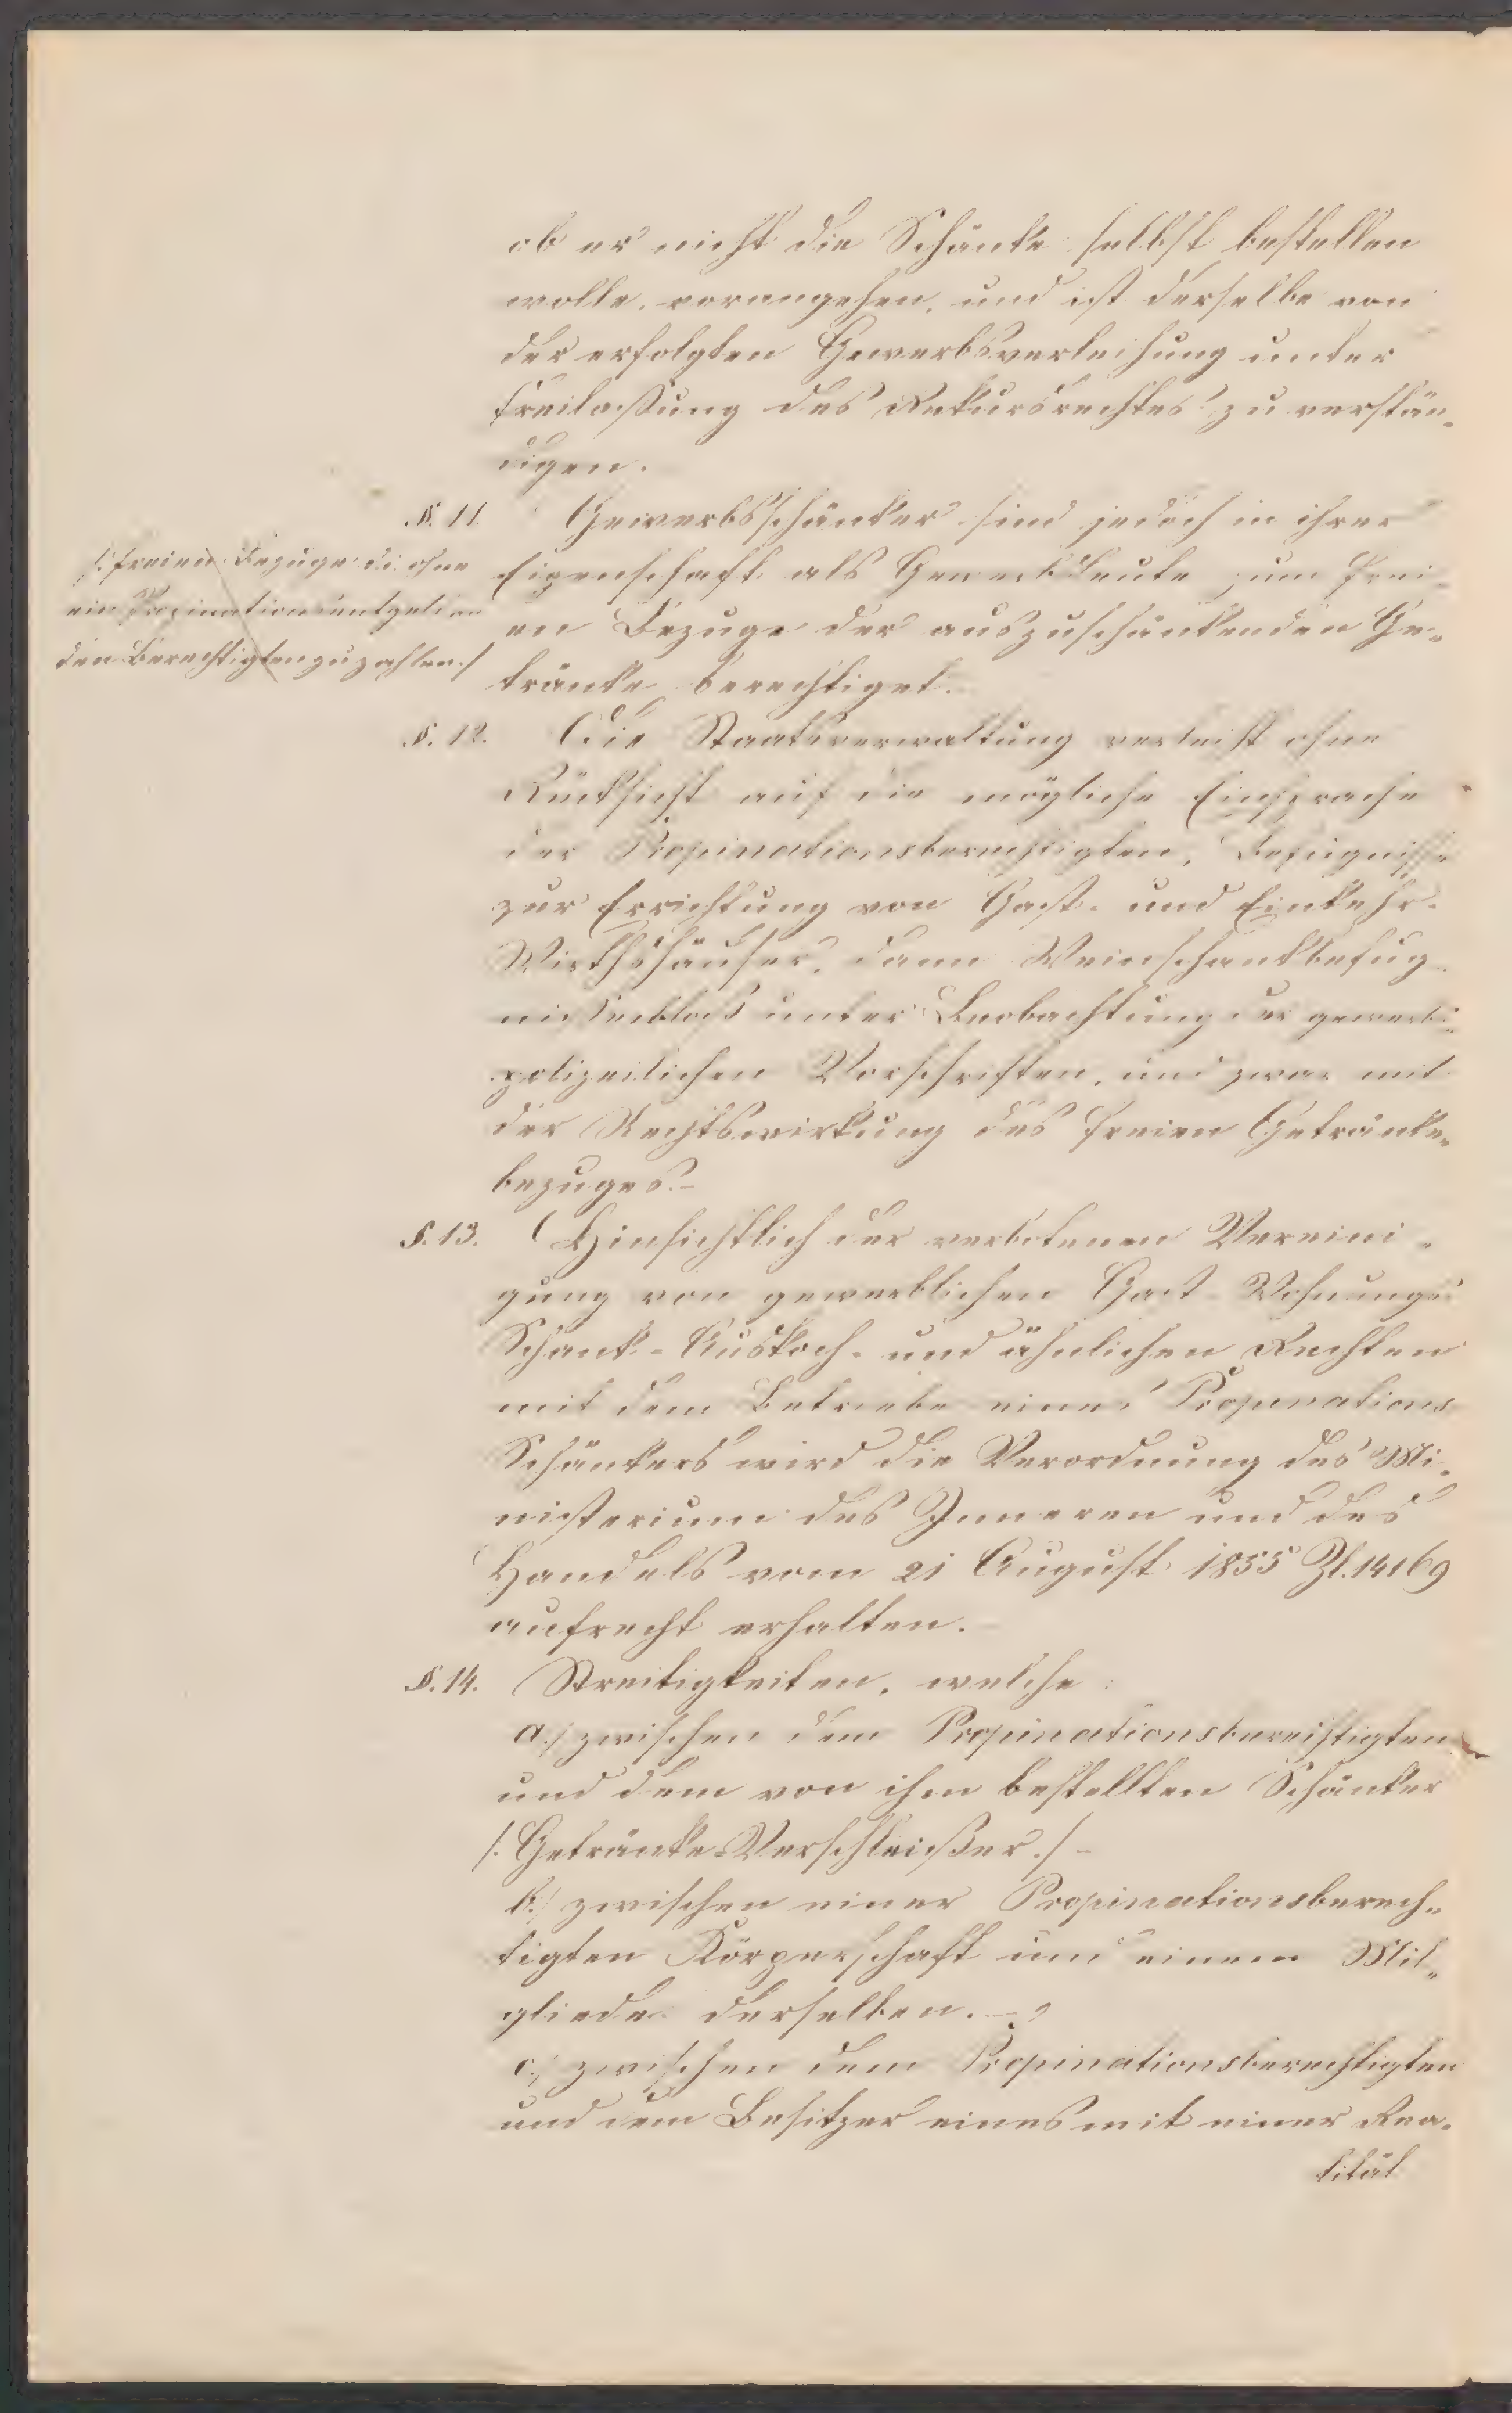 ob er nicht die Schänke selbst bestellen
wolle, vorangehen, und ist derselbe von
der erfolgten Gewerbsverleihung unter
Freilaßung des Rekursrechtes zu verstän„
digen.
§. 11. Gewerbsschänker sind jedoch in ihrer
Eigenschaft als Gewerbsleute zum frei„
en Bezuge der auszuschänkenden Ge„
tränke berechtiget.
/: freien Bezuge d. i. ohne
ein Propinationsentgelt an
den Berechtigten zu zahlen :/
§. 12. Die Staatsverwaltung verleiht ohne
Rücksicht auf die mögliche Einsprache
der Propinationsberechtigten, Befugnisse
zur Errichtung von Gast- und Einkehr-
Wirthshäuser, dann Weinschankbefug„
nisse bloß unter Beobachtung der gewerbs„
polizeilichen Vorschriften, und zwar mit
der Rechtswirkung des freien Getränke„
bezuges.-
§. 13. Hinsichtlich der verbotenen Vereini„
gung von gewerblichen Gast- Wohnungs-
Schank- Auskoch- und ähnlichen Rechten
mit dem Betriebe eines Propinations
Schänkers wird die Verordnung des Mi„
nisterium des Inneren und des
Handels vom 21 August 1855 Zl. 14169
aufrecht erhalten.-
§. 14. Streitigkeiten, welche:
a./ zwischen dem Propinationsberechtigten
und dem von ihm bestellten Schänker
/: Getränke Verschleißer :/ -
b./ zwischen einer Propinationsberech„
tigten Körperschaft und einem Mit„
gliede derselben. -
c./ zwischen dem Propinationsberechtigten
und dem Besitzer eines mit einer Rea„
lität